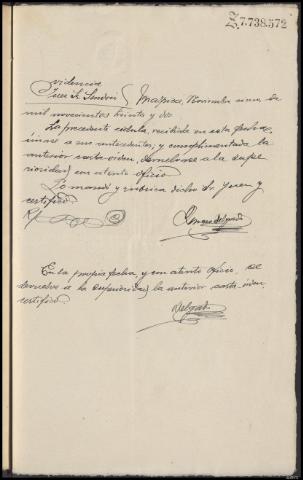 Z.7.738.572
Providencia
Juez Sr. Sendrés } Marzas, Noviembre cinco de
mil novecientos treinta y dos
La precedente cédula, recibida en esta fecha,
únase a sus antecedentes, y cumplimentada la
anterior carta-orden, devuélvase a la supe-
rioridad con atento oficio
Lo mandó y rubrica dicho Sr. Juez y
certifico
Delgado
En la propia fecha, y con atento oficio, se
devuelve a la superioridad la anterior carta-orden
certifico.
Delgado